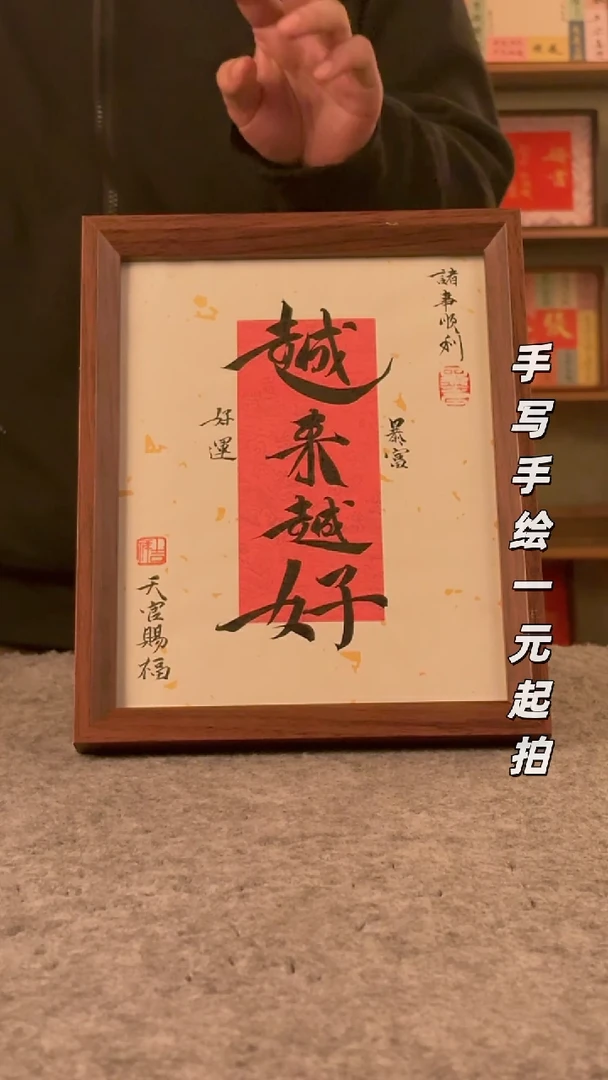 越来越好
諸事順利
暴富
好運
天官賜福
手写手绘一元起拍